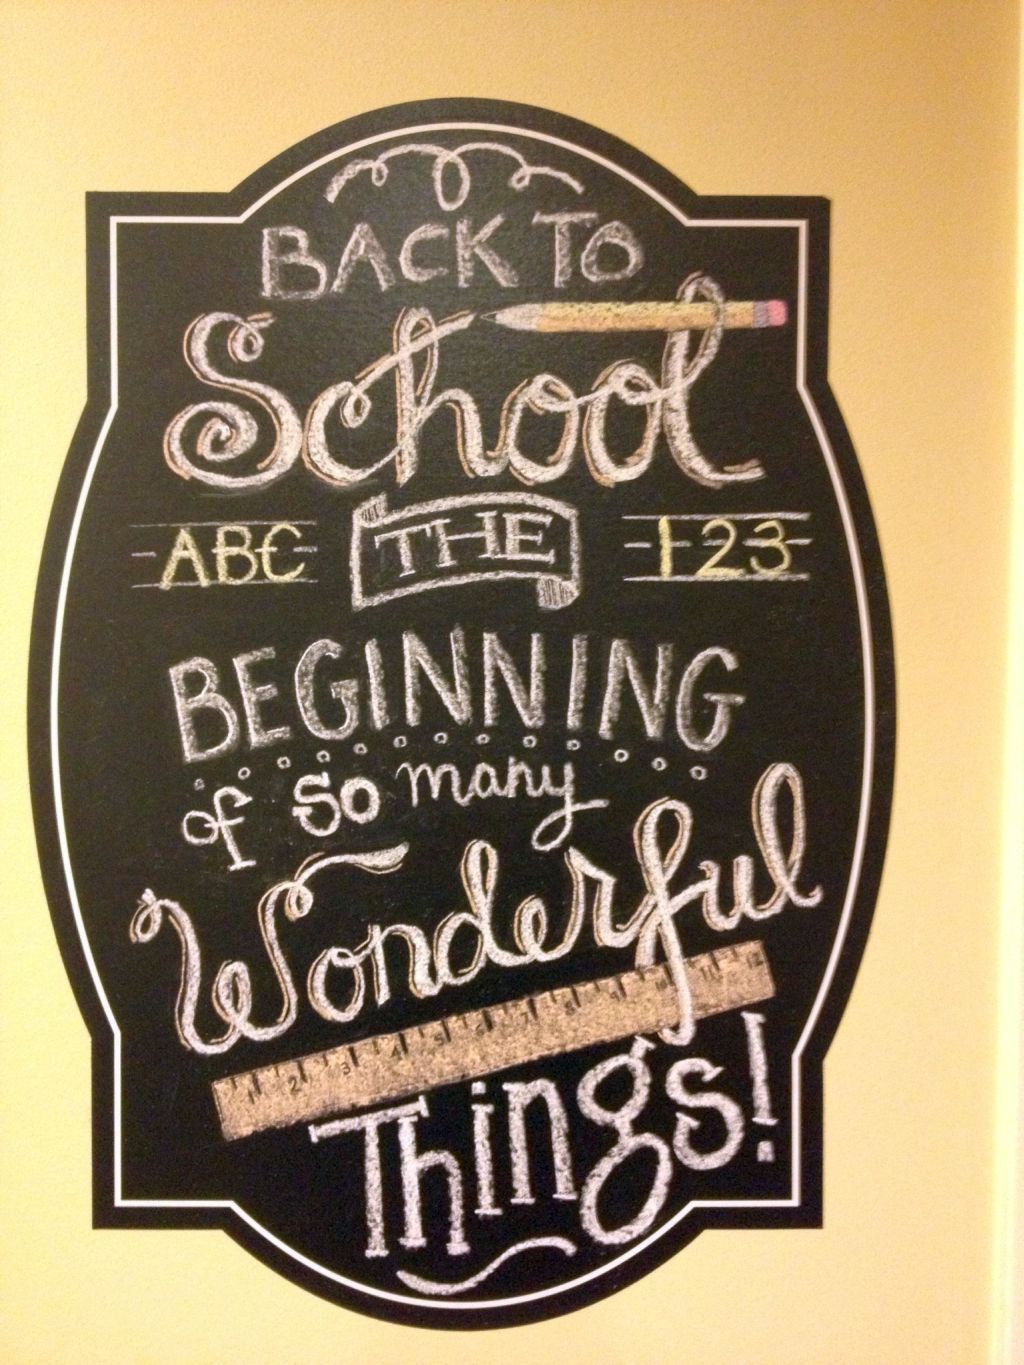 BACK TO
School
ABC THE 123
BEGINNING
of so many
Wonderful
2 3 4 5 6 7 8 9 10 11 12
Things!